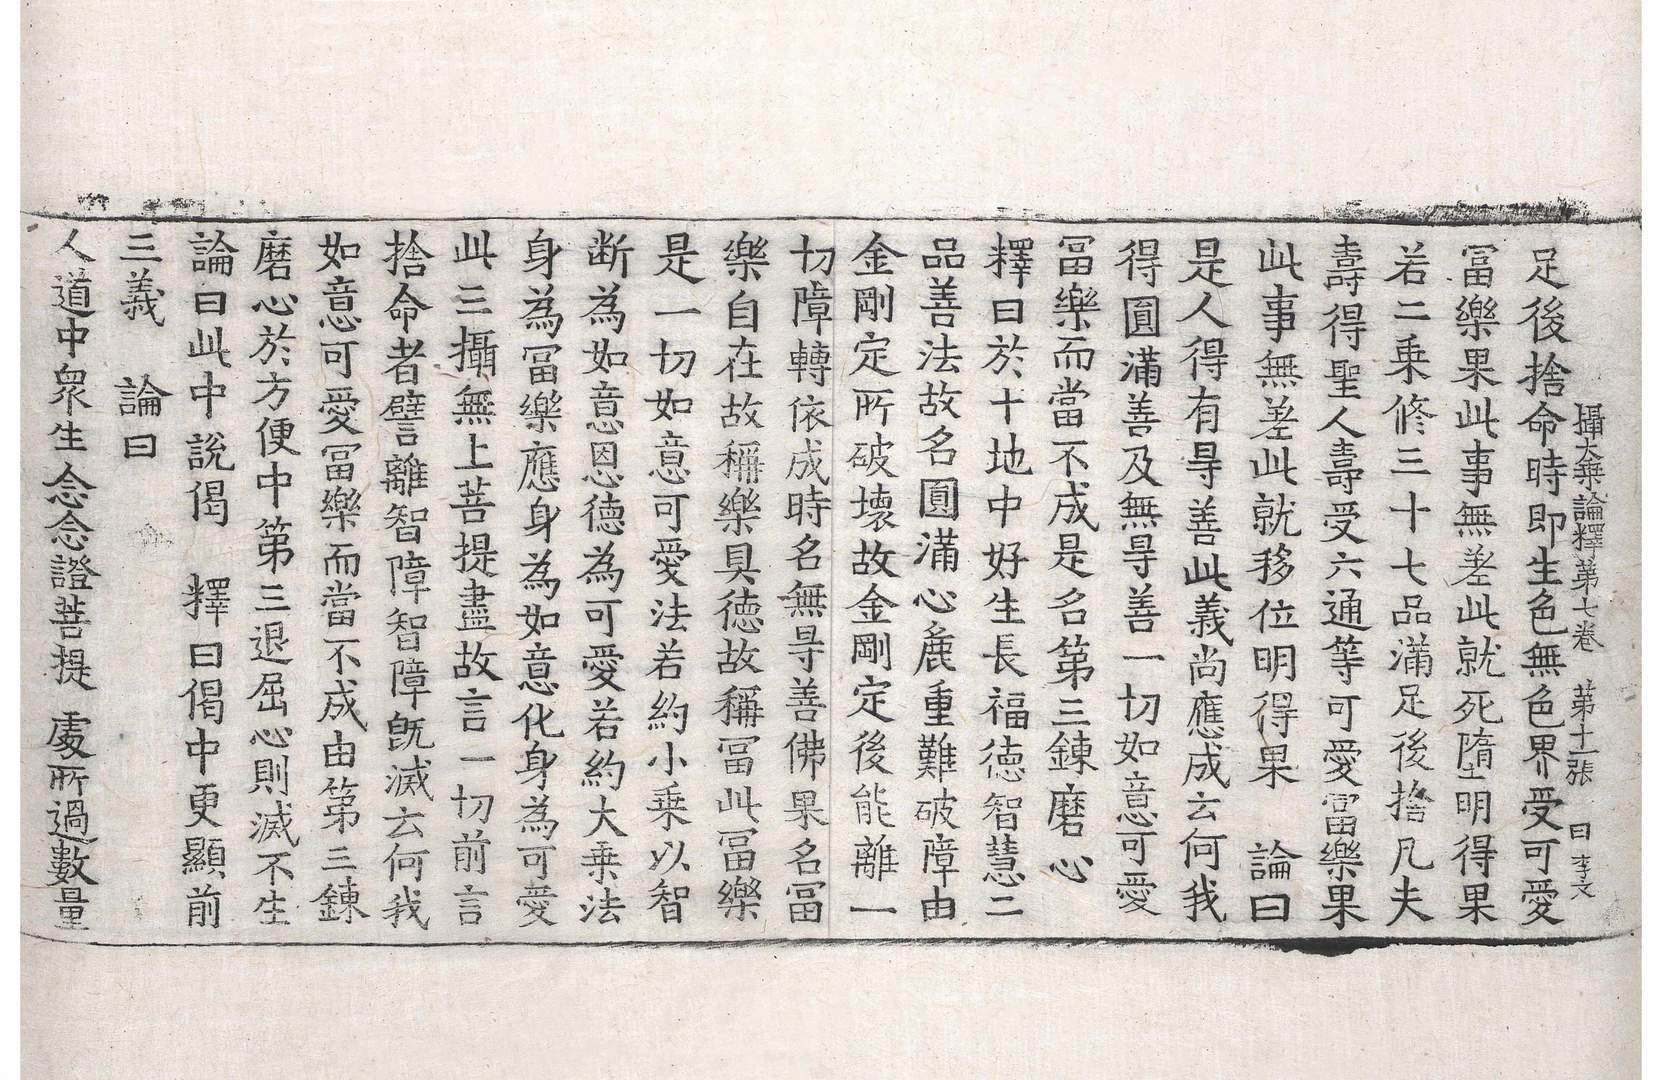 攝大乗論釋第七卷　第十一張　曰　李文
足後捨命時即生色無色界受可愛
冨樂果此事無差此就死墮明得果
若二乗修三十七品滿足後捨凡夫
壽得聖人壽受六通等可愛富樂果
此事無差此就移位明得果　論曰
是人得有㝵善此義尚應成云何我
得圓滿善及無㝵善一切如意可愛
冨樂而當不成是名第三鍊磨心
釋曰於十地中好生長福德智慧二
品善法故名圓滿心麁重難破障由
金剛定所破壞故金剛定後能離一
切障轉依成時名無㝵善佛果名冨
樂自在故稱樂具德故稱冨此冨樂
是一切如意可愛法若約小乗以智
断為如意恩德為可愛若約大乗法
身為冨樂應身為如意化身為可愛
此三攝無上菩提盡故言一切前言
捨命者譬離智障智障既滅云何我
如意可愛冨樂而當不成由第三鍊
磨心於方便中第三退屈心則滅不生
論曰此中說偈　釋曰偈中更顯前
三義　論曰
人道中衆生　念念證菩提　處所過數量